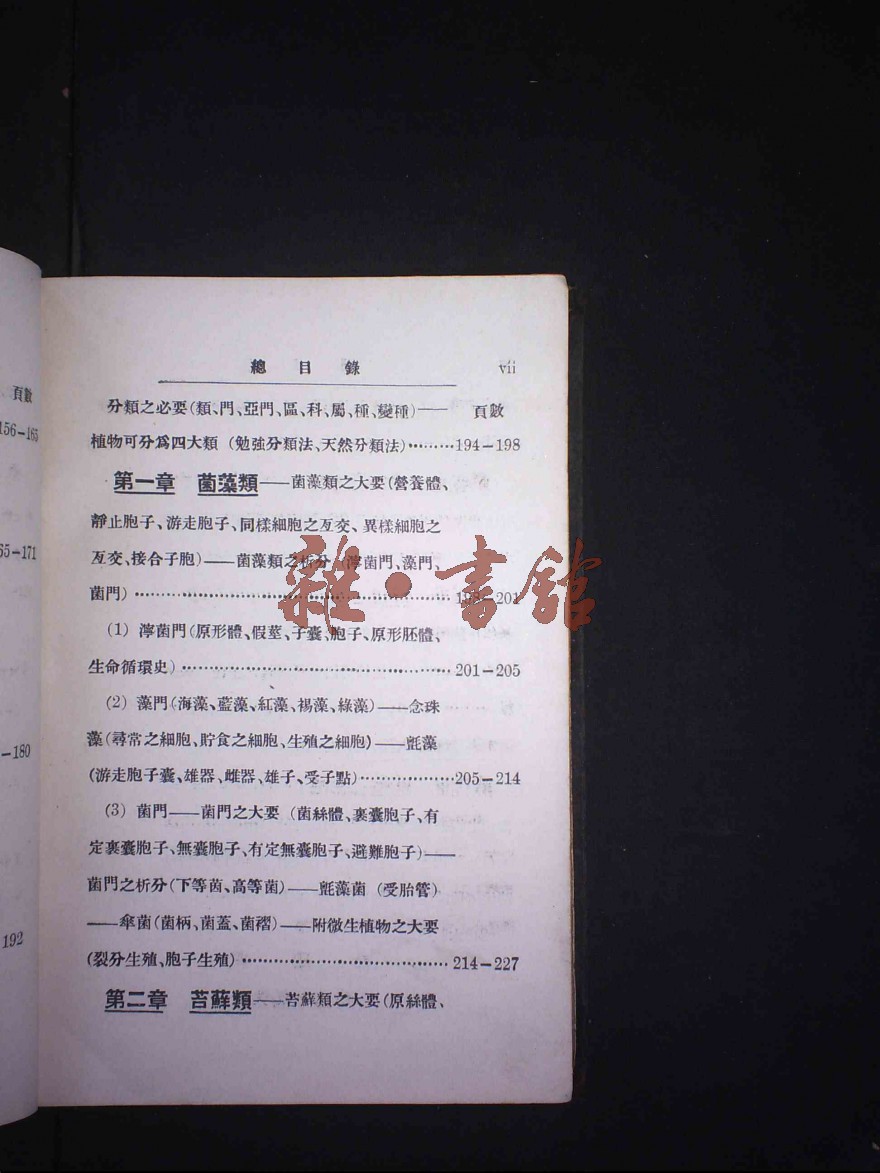 總目錄 vii
頁數
分類之必要(類、門、亞門、區、科、屬、種、變種)—— 頁數
156-165
植物可分爲四大類 (勉強分類法、天然分類法)………194-198
第一章 菌藻類——菌藻類之大要(營養體、
靜止胞子、游走胞子、同樣細胞之互交、異樣細胞之
65-171
互交、接合子胞)——菌藻類之析分 (濘菌門、藻門、
菌門)………………………………………198-201
雜·書舘
(1) 濘菌門(原形體、假莖、子囊、胞子、原形胚體、
生命循環史)……………………………201-205
(2) 藻門(海藻、藍藻、紅藻、褐藻、綠藻)——念珠
-180
藻(尋常之細胞、貯食之細胞、生殖之細胞)——氈藻
(游走胞子囊、雄器、雌器、雄子、受子點)……………205-214
(3) 菌門——菌門之大要 (菌絲體、裹囊胞子、有
定裹囊胞子、無囊胞子、有定無囊胞子、避難胞子)——
菌門之析分(下等菌、高等菌)——氈藻菌 (受胎管)
192
——傘菌(菌柄、菌蓋、菌褶)——附微生植物之大要
(裂分生殖、胞子生殖)……………………………214-227
第二章 苔蘚類——苔蘚類之大要(原絲體、